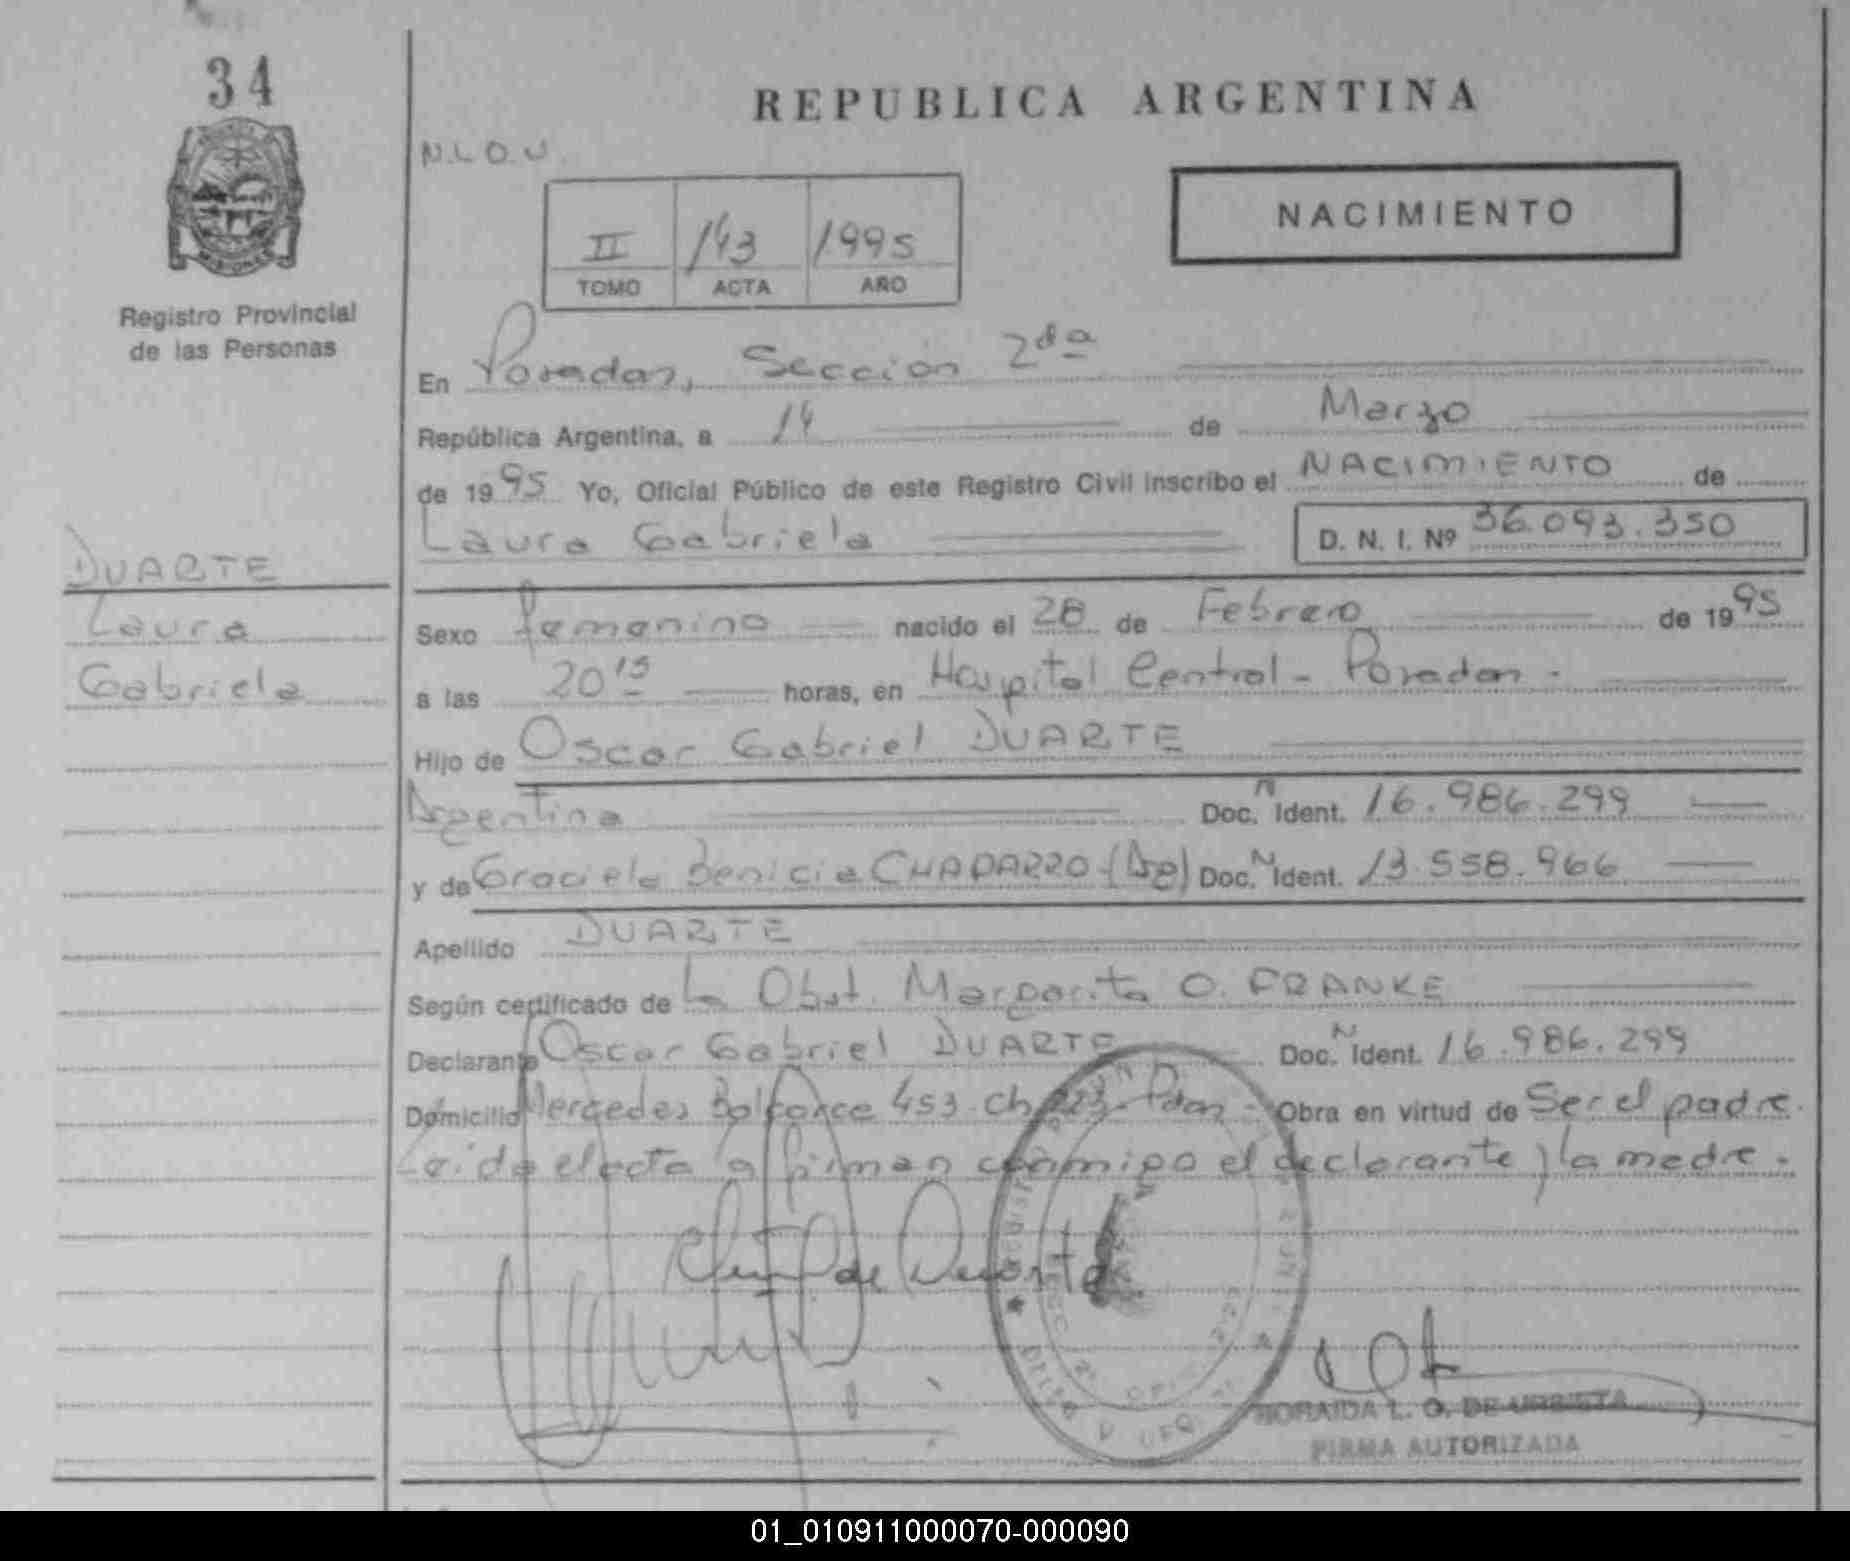 34
REPUBLICA ARGENTINA
N.L.O.U.
NACIMIENTO
II 143 1995
TOMO ACTA AÑO
Registro Provincial
de las Personas
En Posadas, Sección 2da
República Argentina, a 14 de Marzo
de 1995 Yo, Oficial Público de este Registro Civil inscribo el NACIMIENTO de
Laura Gabriela D. N. I. Nº 36.093.350
DUARTE
Laura
Gabriela
Sexo femenino nacido el 28 de Febrero de 1995
a las 20 15 horas, en Hospital Central - Posadas -
Hijo de Oscar Gabriel DUARTE
Argentina Doc. N Ident. 16.986.299
y de Graciela Benicia CHAPARRO (Arg) Doc. N Ident. 13.558.966
Apellido DUARTE
Según certificado de La Obst. Margarita O. FRANKE
Declarante Oscar Gabriel DUARTE Doc. N Ident. 16.986.299
Domicilio Mercedes Balcarce 453 - Ch 223 - Pdas - Obra en virtud de Ser el padre.
Leída el acta la firman conmigo el declarante y la madre.
de Duarte
L. O. DE URBIETA
FIRMA AUTORIZADA
01_010911000070-000090